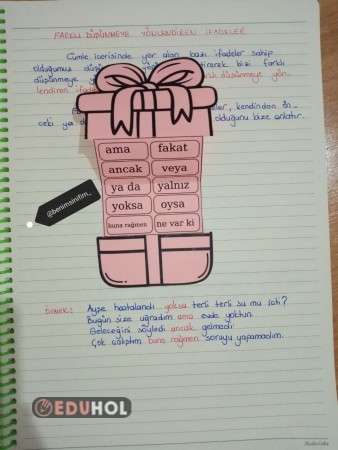 FARKLI DÜŞÜNMEYE YÖNLENDİREN İFADELER
Cümle içerisinde yer alan bazı ifadeler sahip
olduğumuz düşü tirerek bizi farklı
düşünmeye klı düşünmeye yön
lendiren ifade
eler, kendinden ön
ceki ya d olduğunu bize anlatır.
ama fakat
ancak veya
ya da yalnız
yoksa oysa
buna rağmen ne var ki
@benimsinifim_
ÖRNEK: Ayşe hastalandı yoksa terli terli su mu içti?
Bugün size uğradım ama evde yoktun.
Geleceğini söyledi ancak gelmedi.
Çok çalıştım buna rağmen soruyu yapamadım.
EDUHOL